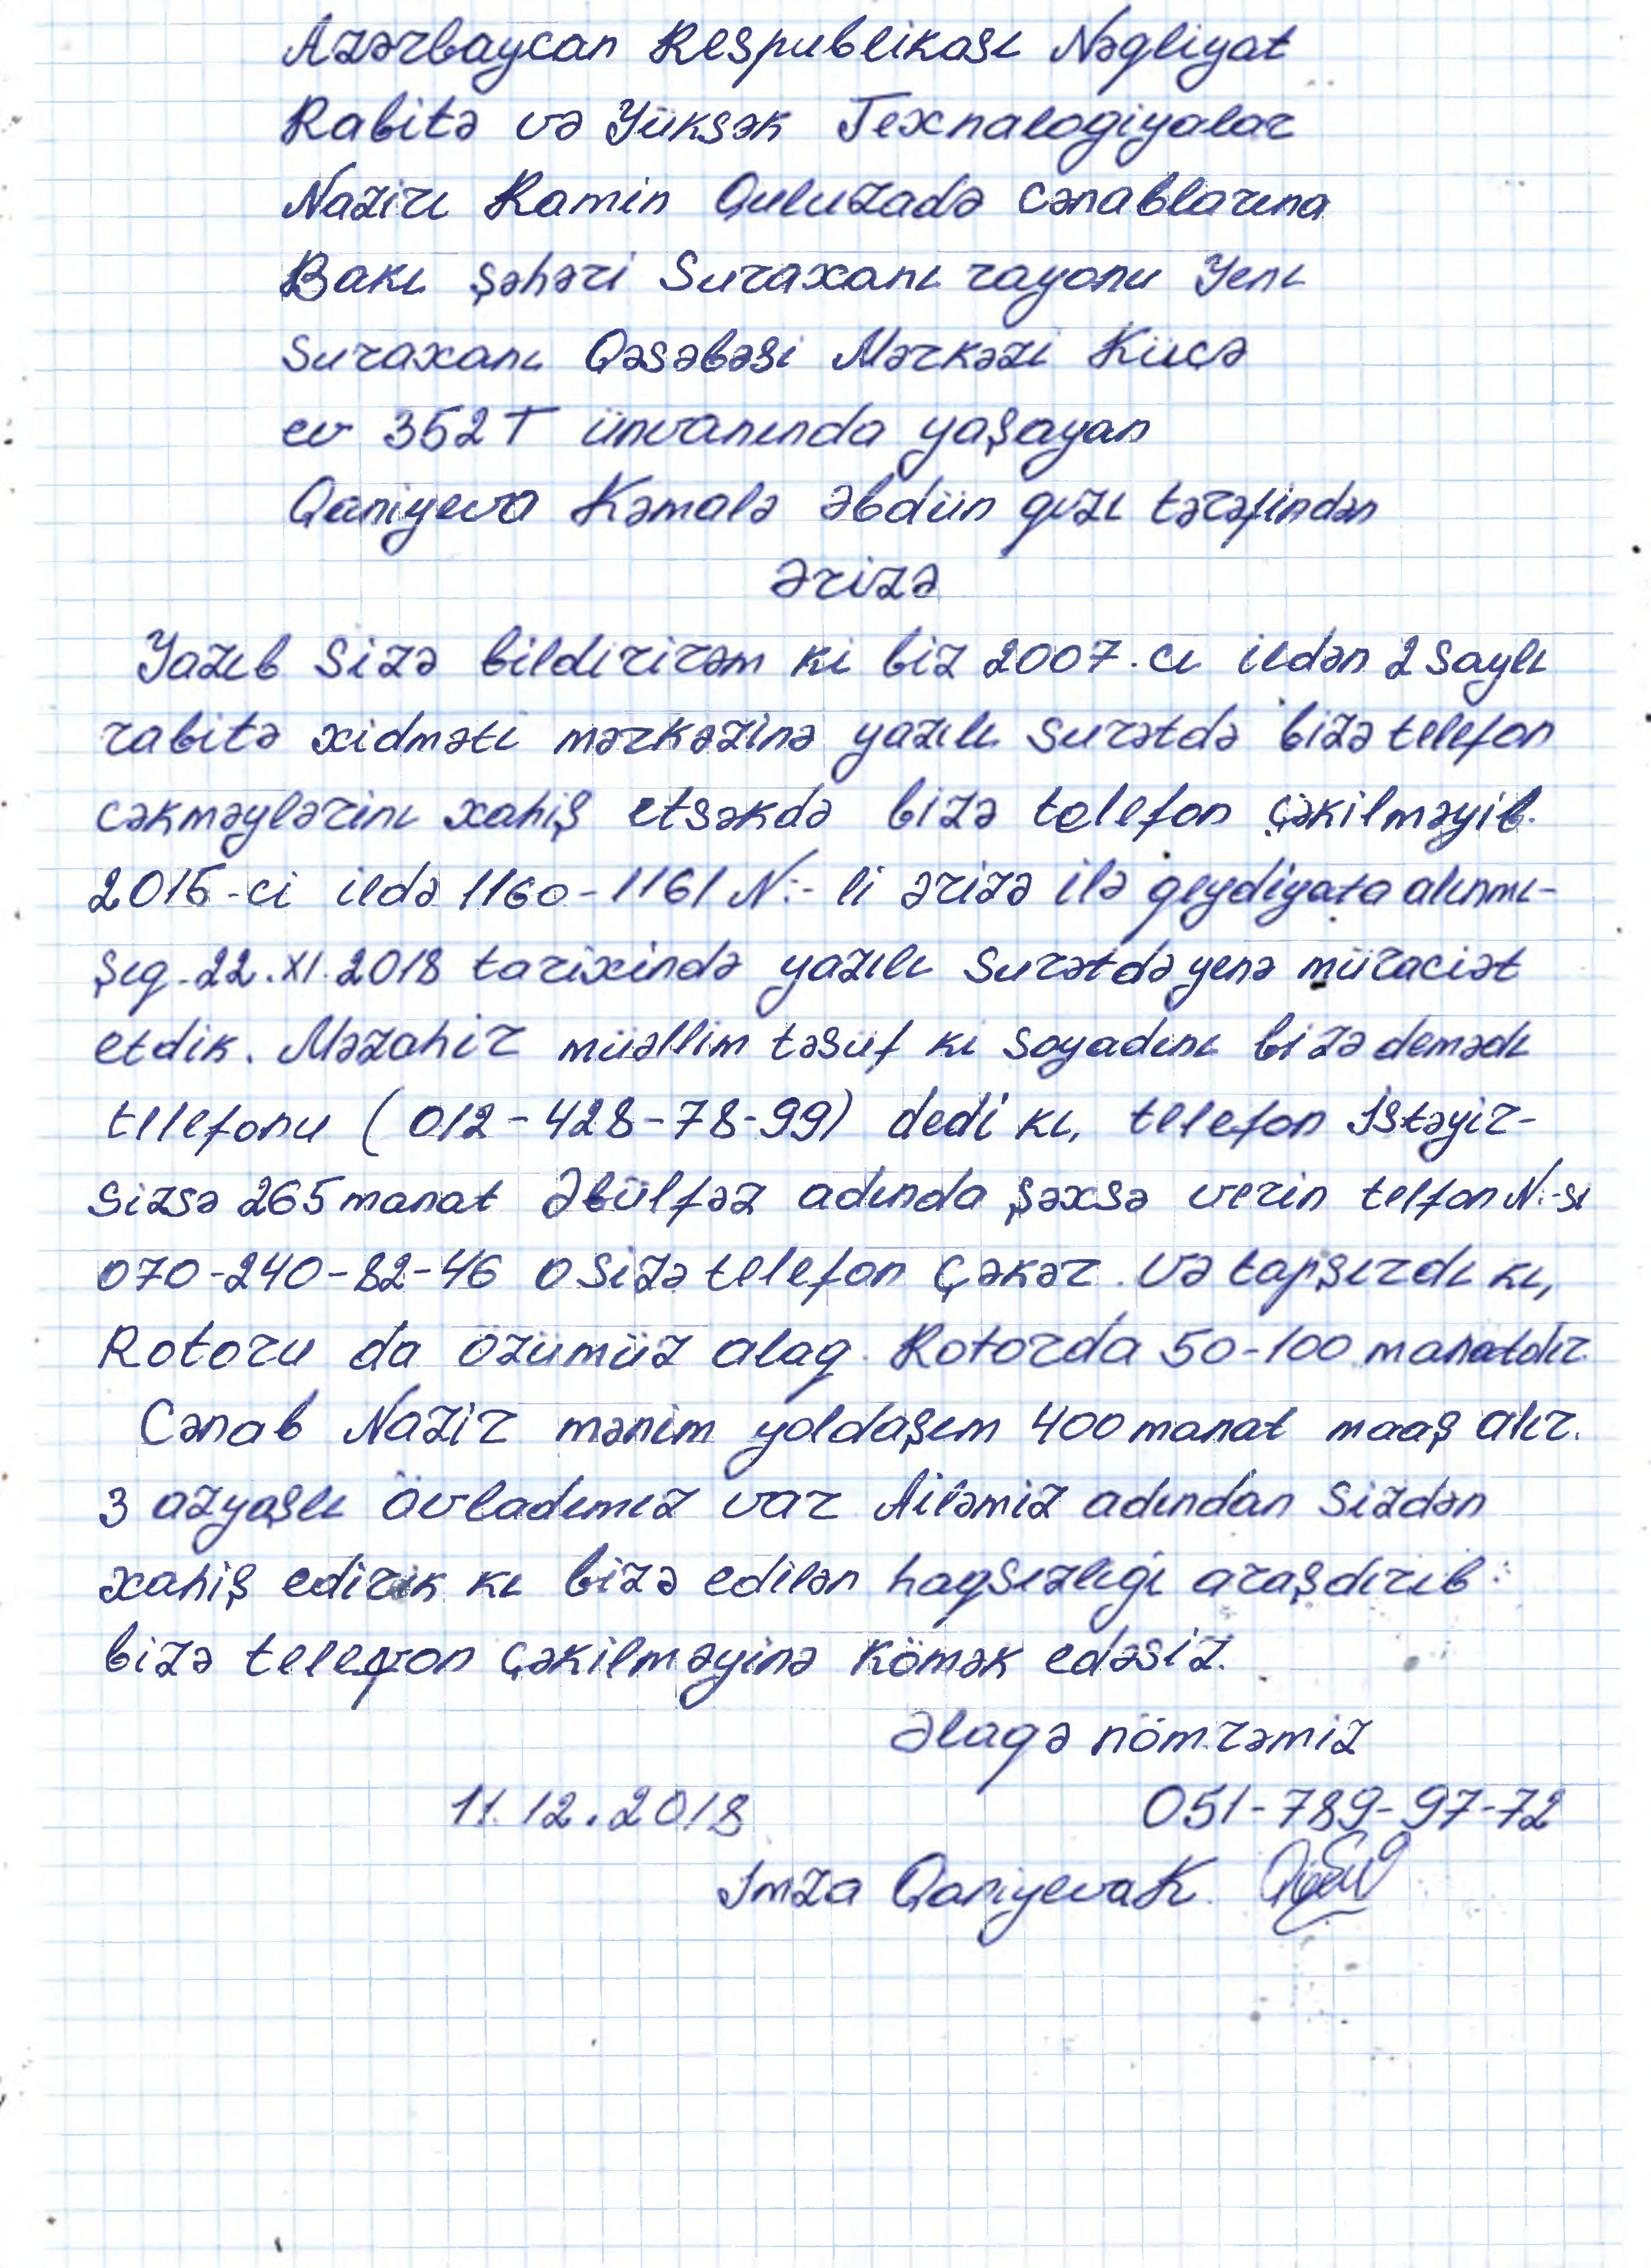 Azərbaycan Respublikası Nəqliyat
Rabitə və Yüksək Texnalogiyalar
Naziri Ramin Quluzadə cənablarına
Bakı şəhəri Suraxanı rayonu Yeni
Suraxanı Qəsəbəsi Mərkəzi Küçə
ev 352T ünvanında yaşayan
Qaniyeva Kəmalə Əbdün qızı tərəfindən
Ərizə
Yazıb Sizə bildirirəm ki biz 2007-ci ildən 2 saylı
rabitə xidməti mərkəzinə yazılı surətdə bizə telefon
cəkməylərini xahiş etsəkdə bizə telefon çəkilməyib.
2015-ci ildə 1160-1161 N:- li ərizə ilə qeydiyata alınmı-
şıq. 22.XI.2018 tarixində yazılı surətdə yenə müraciət
etdik. Məzahir müəllim təsüf ki soyadını bizə demədi
telefonu (012-428-78-99) dedi ki, telefon istəyir-
sizsə 265 manat Əbülfəz adında şəxsə verin telfon N:-si
070-240-82-46 o sizə telefon çəkər. Və tapşırdı ki,
Rotoru da özümüz alaq. Rotorda 50-100 manatdır.
Cənab Nazir mənim yoldaşım 400 manat maaş alır.
3 azyaşlı övladımız var Ailəmiz adından Sizdən
xahiş edirik ki bizə edilən haqsızlığı araşdırıb
bizə telefon çəkilməyinə kömək edəsiz.
Əlaqə nömrəmiz
11.12.2018 051-789-97-72
İmza Qaniyeva K.